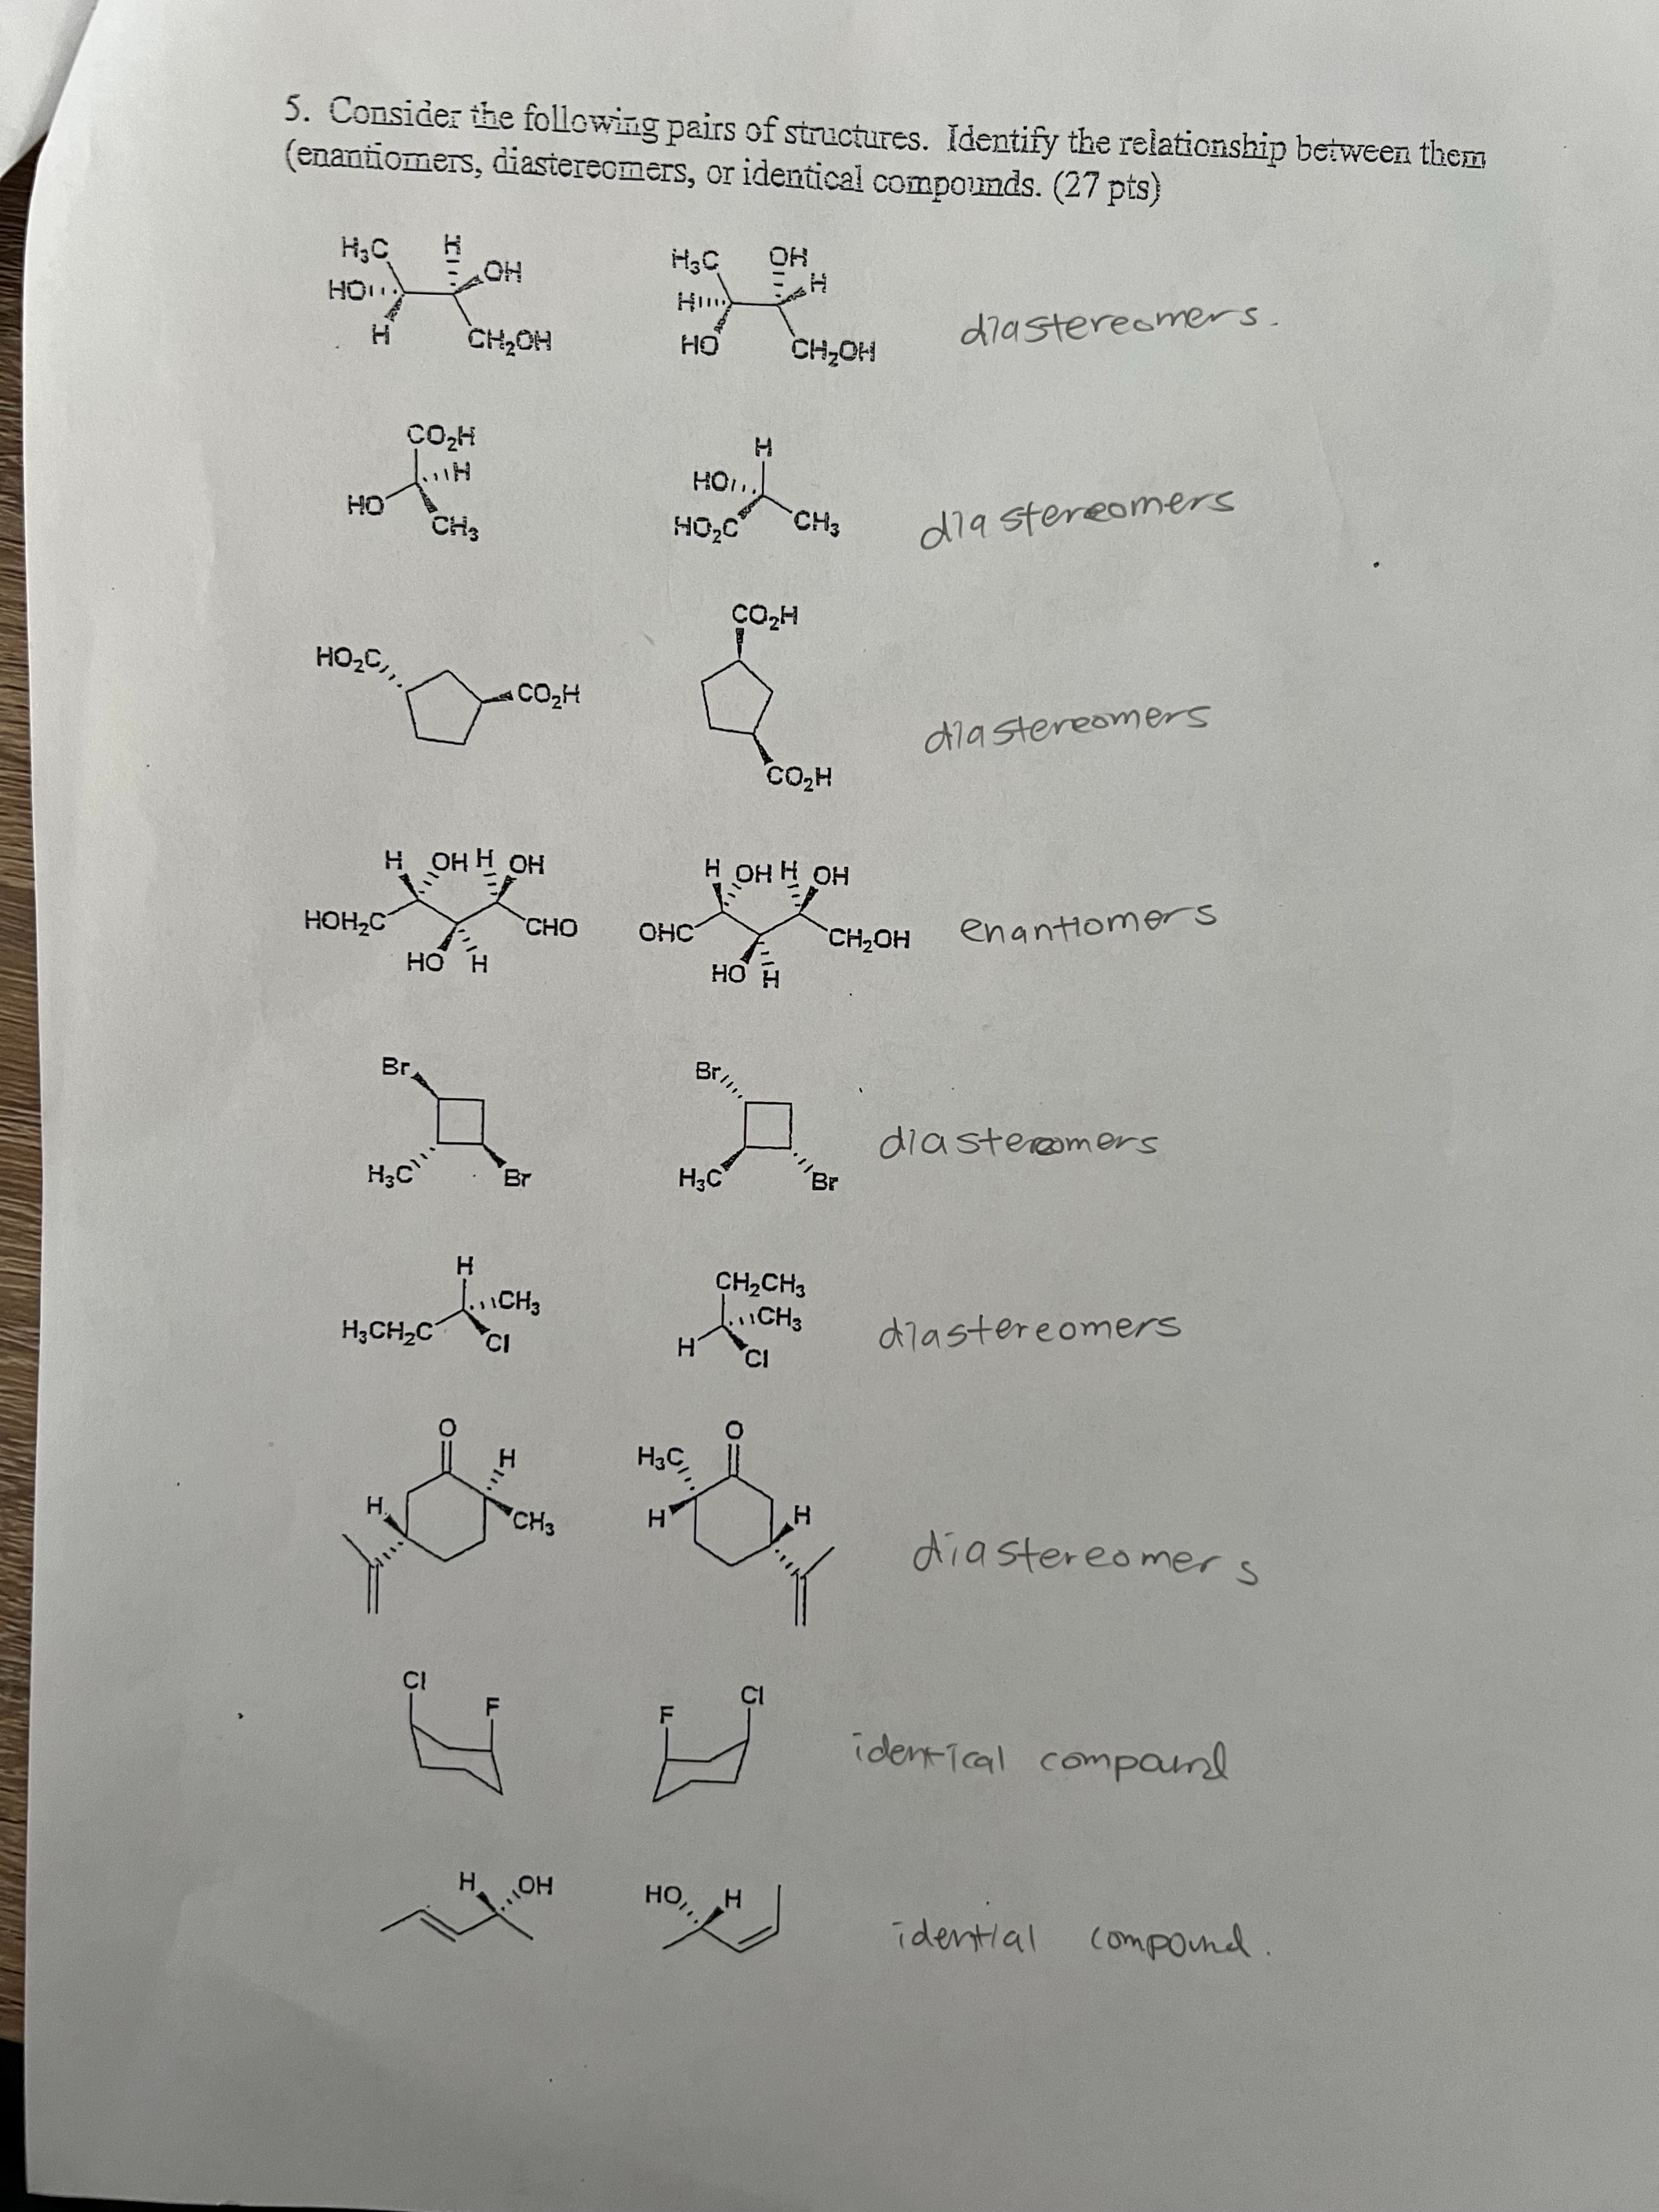 5. Consider the following pairs of structures. Identify the relationship between them
(enantiomers, diastereomers, or identical compounds. (27 pts)
H₃C H OH HO H CH₂OH
H₃C OH H H HO CH₂OH
diastereomers.
CO₂H H HO CH₃
H HO HO₂C CH₃
diastereomers
HO₂C CO₂H
CO₂H CO₂H
diastereomers
H OH H OH HOH₂C CHO HO H
H OH H OH OHC CH₂OH HO H
enantiomers
Br H₃C Br
Br H₃C Br
diastereomers
H CH₃ H₃CH₂C Cl
CH₂CH₃ CH₃ H Cl
diastereomers
O H H CH₃
H₃C O H H
diastereomers
Cl F
F Cl
identical compound
H OH
HO H
idential compound.